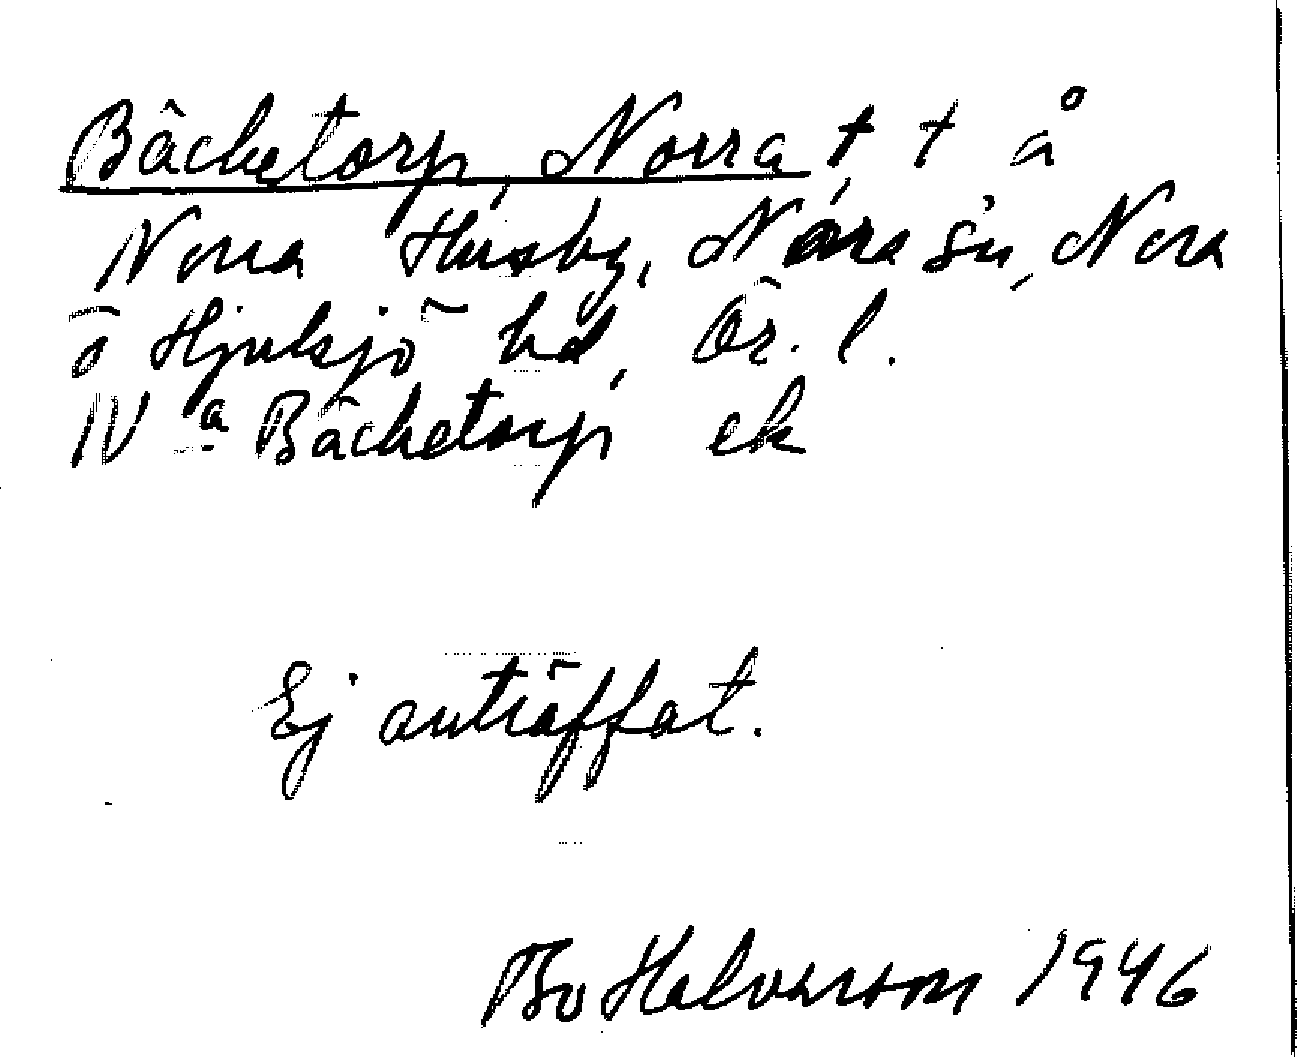 Bäcketorp, Norra, † t å
Norra Husby, Nora sn, Nora
o Hjulsjö hd, Ör. l.
N a Bäcketorp ek
Ej anträffat.
Bo Halvarson 1946